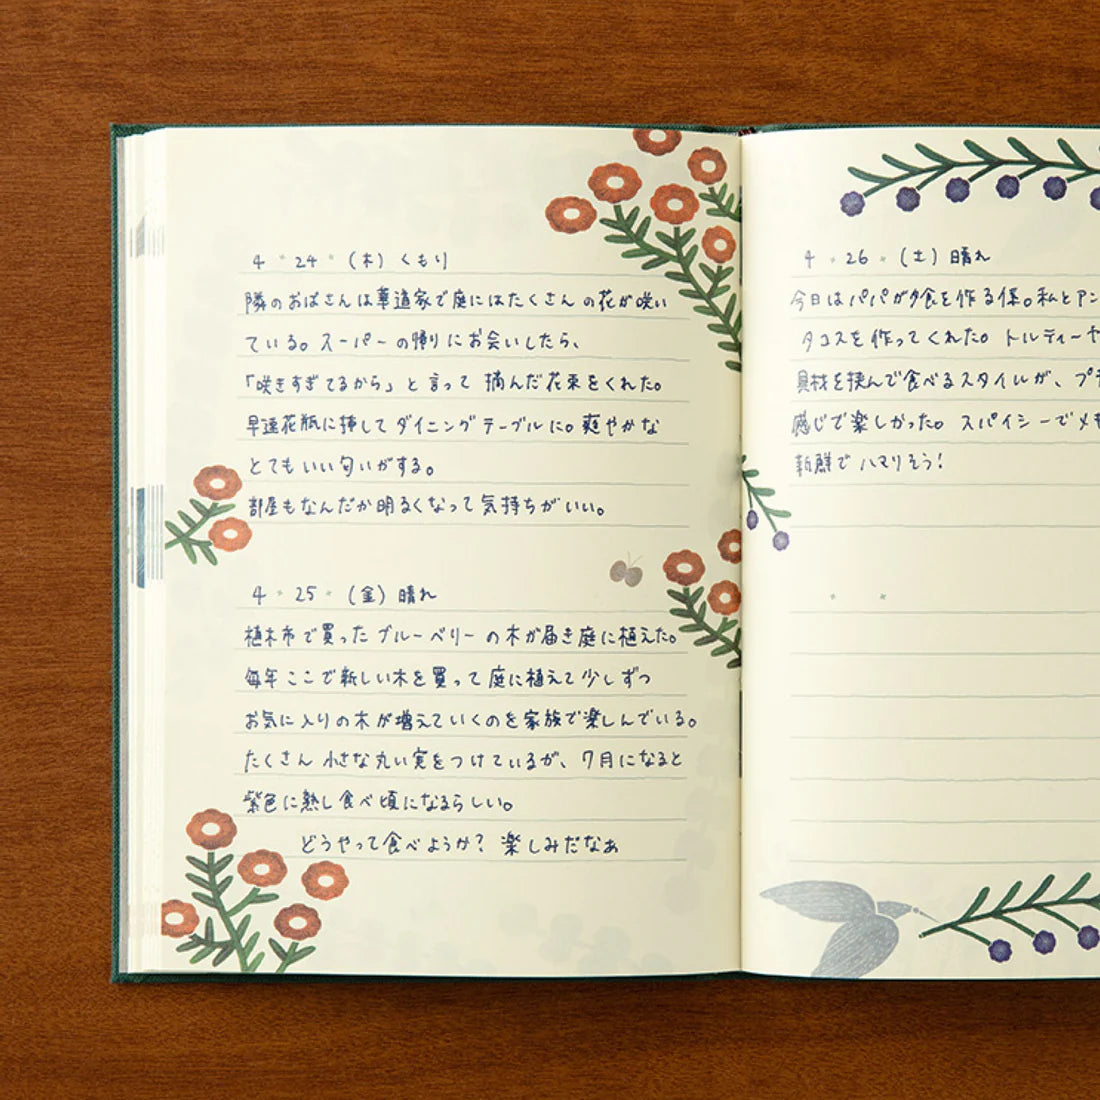 4・24・(木) くもり
隣のおばさんは華道家で庭にはたくさんの花が咲い
ている。スーパーの帰りにお会いしたら、
「咲きすぎてるから」と言って 摘んだ花束をくれた。
早速花瓶に挿してダイニングテーブルに。爽やかな
とてもいい匂いがする。
部屋もなんだか明るくなって気持ちがいい。
4・25・(金) 晴れ
植木市で買ったブルーベリーの木が届き庭に植えた。
毎年ここで新しい木を買って庭に植えて少しずつ
お気に入りの木が増えていくのを家族で楽しんでいる。
たくさん小さな丸い実をつけているが、7月になると
紫色に熟し食べ頃になるらしい。
どうやって食べようか? 楽しみだなぁ
4・26・(土) 晴れ
今日はパパが夕食を作る係。私とアン
タコスを作ってくれた。トルティーヤ
具材を挟んで食べるスタイルが、プ
感じで楽しかった。スパイシーでメキ
新鮮でハマりそう!